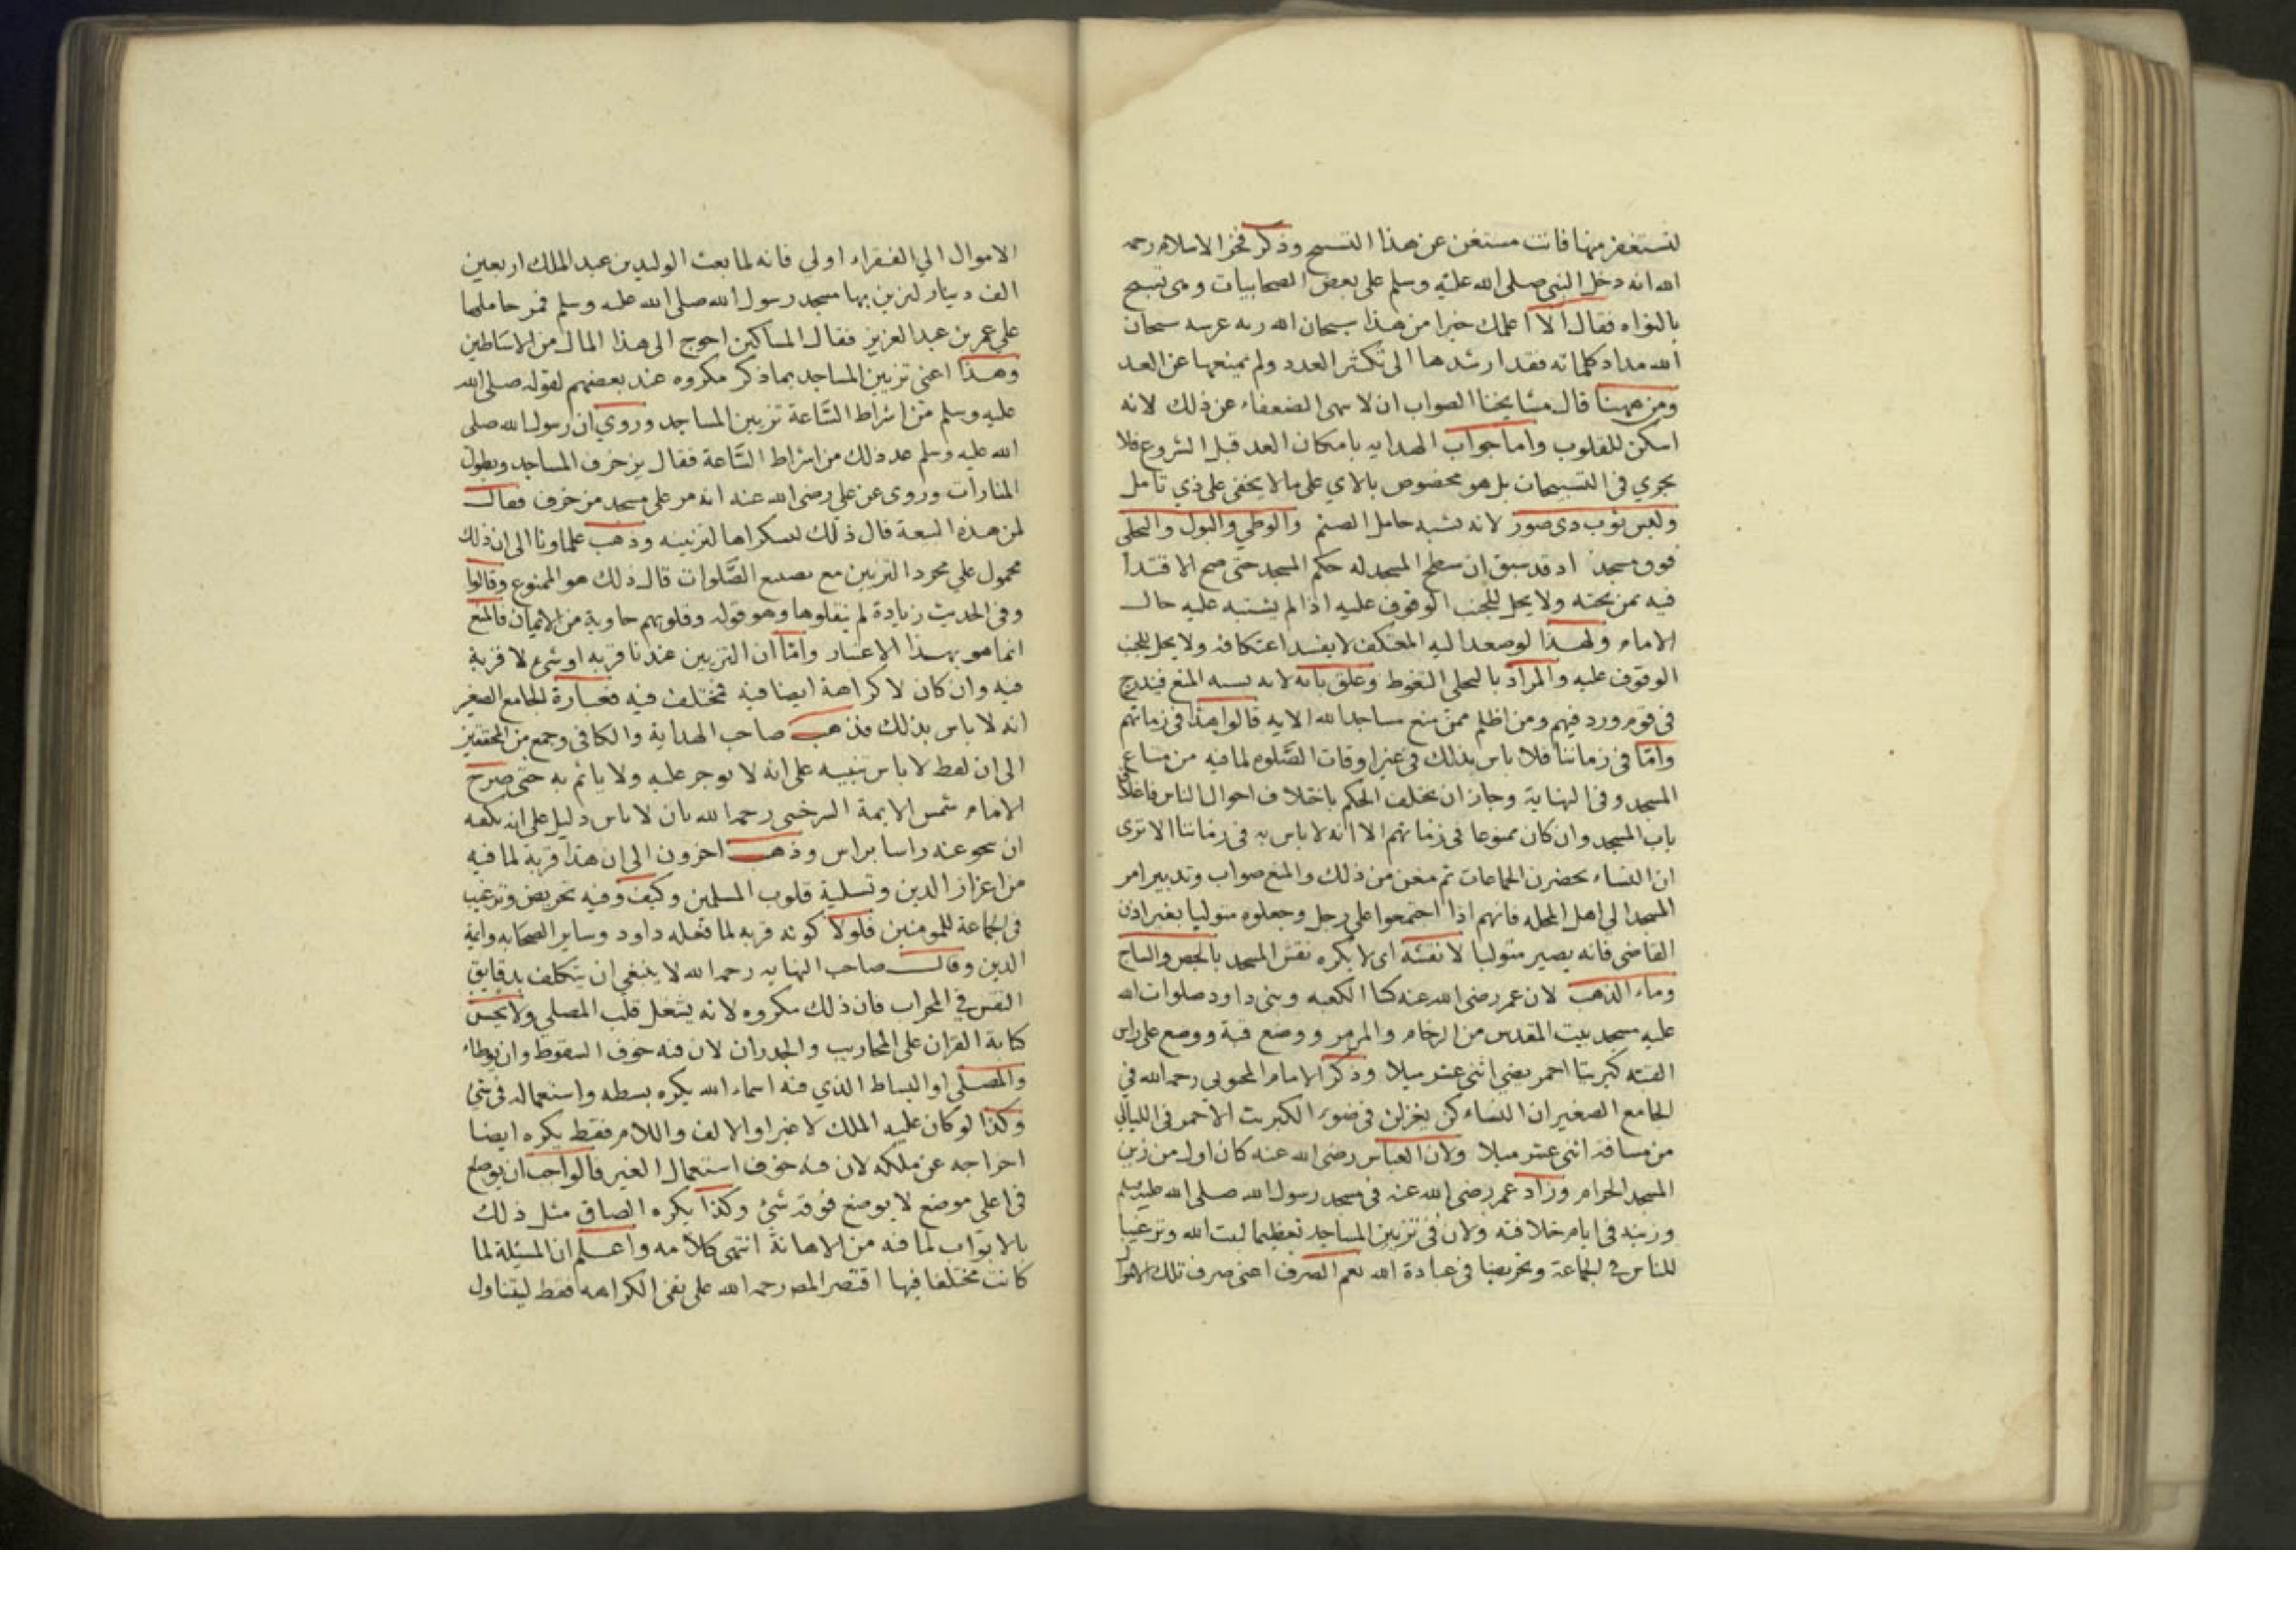 لتستغفر منها فانت مستغن عن هذا التسبيح وذكر فخر الاسلام رحمه
الله انه دخل النبي صلى الله عليه وسلم على بعض الصحابيات وهي تسبح
بالنواه فقال الا اعلمك خيرا من هذا سبحان الله زنه عرشه سبحان
الله مداد كلماته فقد ارشدها الى تكثر العدد ولم يمنعها عن العد
ومن ههنا قال مشايخنا الصواب ان لا ينهى الضعفاء عن ذلك لانه
اسكن للقلوب واما جواب الهدايه بامكان العد قبل الشروع فلا
يجري في التسبيحات بل هو مخصوص بالاي على ما لا يخفى على ذي تامل
ولبس ثوب ذي صور لانه يشبه حامل الصنم والوطي والبول والتخلي
فوق مسجد اذ قد سبق ان سطح المسجد له حكم المسجد حتى صح الاقتدا
فيه بمن تحته ولا يحل للجنب الوقوف عليه اذا لم يشتبه عليه حال
الامام ولهذا لو صعد اليه المعتكف لا يفسد اعتكافه ولا يحل للجنب
الوقوف عليه والمراد بالتخلي التغوط وغلق بابه لانه يشبه المنع فيندرج
في قوم ورد فيهم ومن اظلم ممن منع مساجد الله الايه قالوا هذا في زمانهم
واما في زماننا فلا باس بذلك في غير اوقات الصلوه لما فيه من متاع
المسجد وفي النهاية وجاز ان يختلف الحكم باختلاف احوال الناس فاغلاق
باب المسجد وان كان ممنوعا في زمانهم الا انه لا باس به في زماننا الا ترى
ان النساء يحضرن الجماعات ثم منعن من ذلك والمنع صواب وتدبير امر
المسجد الي اهل المحله فانهم اذا اجتمعوا على رجل وجعلوه متوليا بغير اذن
القاضي فانه يصير متوليا لا نقشه اي لا يكره نقش المسجد بالجص والساج
وماء الذهب لان عمر رضي الله عنه كسا الكعبه وبنى داود صلوات الله
عليه مسجد بيت المقدس من الرخام والمرمر ووضع قبة ووضع على راس
القبه كبريتا احمر يضي اثني عشر ميلا وذكر الامام المحبوبي رحمه الله في
الجامع الصغير ان النساء كن يغزلن في ضوء الكبريت الاحمر في الليالي
من مسافة اثني عشر ميلا ولان العباس رضي الله عنه كان اول من زين
المسجد الحرام وزاد عمر رضي الله عنه في مسجد رسول الله صلى الله عليه وسلم
وزينه في ايام خلافته ولان في تزيين المساجد تعظيما لبيت الله وترغيبا
للناس في الجماعة وتحريضا في عبادة الله نعم الصرف اعني صرف تلك الاموال
الاموال الي الفقراء اولي فانه لما بعث الوليد بن عبد الملك اربعين
الف دينار لتزين بها مسجد رسول الله صلى الله عليه وسلم فمر حاملها
على عمر بن عبد العزيز فقال المساكين احوج الى هذا المال من الاساطين
وهذا اعني تزيين المساجد بما ذكر مكروه عند بعضهم لقوله صلى الله
عليه وسلم من اشراط الساعة تزيين المساجد وروي ان رسول الله صلى
الله عليه وسلم عد ذلك من اشراط الساعة فقال يزخرف المساجد ويطول
المنارات وروى عن علي رضي الله عنه انه مر على مسجد مزخرف فقال
لمن هذه البيعة قال ذلك لتزيينه وذهب علماونا الى ان ذلك
محمول علي مجرد التزيين مع تضييع الصلوات قال ذلك هو الممنوع وقالوا
وفي الحديث زيادة لم ينقلوها وهو قوله وقلوبهم خاوية من الايمان فالمنع
انما هو بهذا الاعتبار واما ان التزيين عندنا قربه او شي لا قربة
فيه وان كان لا كراهة ايضا فيه مختلف فيه فعبارة الجامع الصغير
انه لا باس بذلك فذهب صاحب الهداية والكافي وجمع من المحققين
الى ان لفظ لا باس تنبيه على انه لا يوجر عليه ولا ياثم به حتى صرح
الامام شمس الايمة السرخسي رحمه الله بان لا باس دليل على انه يكفيه
ان ينجو عنه راسا براس وذهب اخرون الى ان هذا قربة لما فيه
من اعزاز الدين وتسلية قلوب المسلمين وكيف وفيه تحريض وترغيب
في الجماعة للمومنين فلولا كونه قربه لما فعله داود وساير الصحابه وايمة
الدين وقال صاحب النهايه رحمه الله لا ينبغي ان يتكلف بدقايق
النقش في المحراب فان ذلك مكروه لانه يشغل قلب المصلي ولا يحسن
كتابة القران على المحاريب والجدران لان فيه خوف السقوط وان يوطاء
والمصلى او البساط الذي فيه اسماء الله يكره بسطه واستعماله في شئ
وكذا لو كان عليه الملك لا غير او الالف واللام فقط يكره ايضا
اخراجه عن ملكه لان فيه خوف استعمال الغير فالواجب ان يوضع
في اعلى موضع لا يوضع فوقه شئ وكذا يكره الصاق مثل ذلك
بالابواب لما فيه من الاهانة انتهى كلامه واعلم ان المسئلة لما
كانت مختلفا فيها اقتصر المصر رحمه الله على نفي الكراهه فقط ليتناول